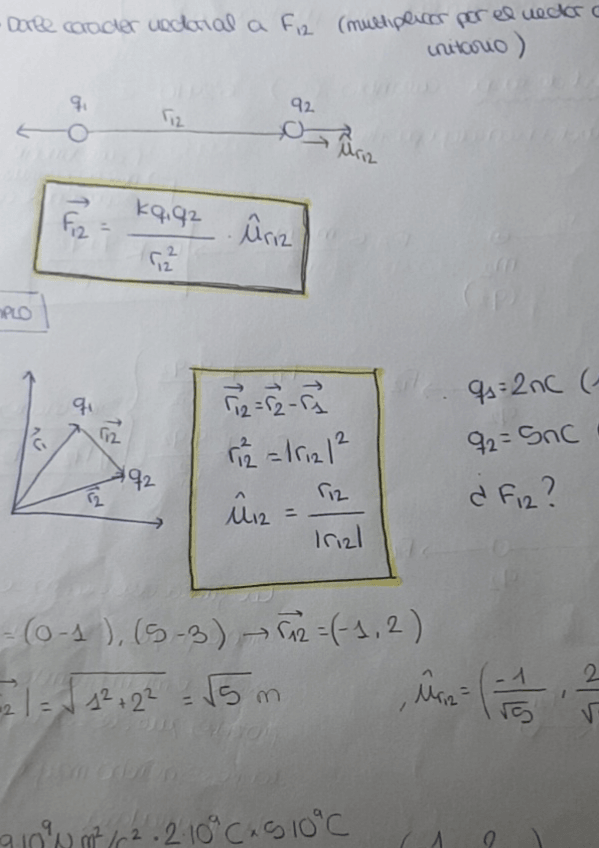 Darle caracter vectorial a F₁₂ (multiplicar por el vector
unitario)
q₁ r₁₂ q₂
û_r₁₂
F⃗₁₂ = kq₁q₂ / r₁₂² · û_r₁₂
q₁
r⃗₁ r⃗₁₂
q₂
r⃗₂
r⃗₁₂ = r⃗₂ - r⃗₁
r₁₂² = |r₁₂|²
û₁₂ = r₁₂ / |r₁₂|
q₁=2nC (
q₂=5nC
¿ F₁₂?
=(0-1), (5-3) → r⃗₁₂ =(-1,2)
| = √1²+2² = √5 m
, û_r₁₂ = (-1/√5 , 2/√
10⁹ N m²/c² · 2·10⁹C × 510⁹C